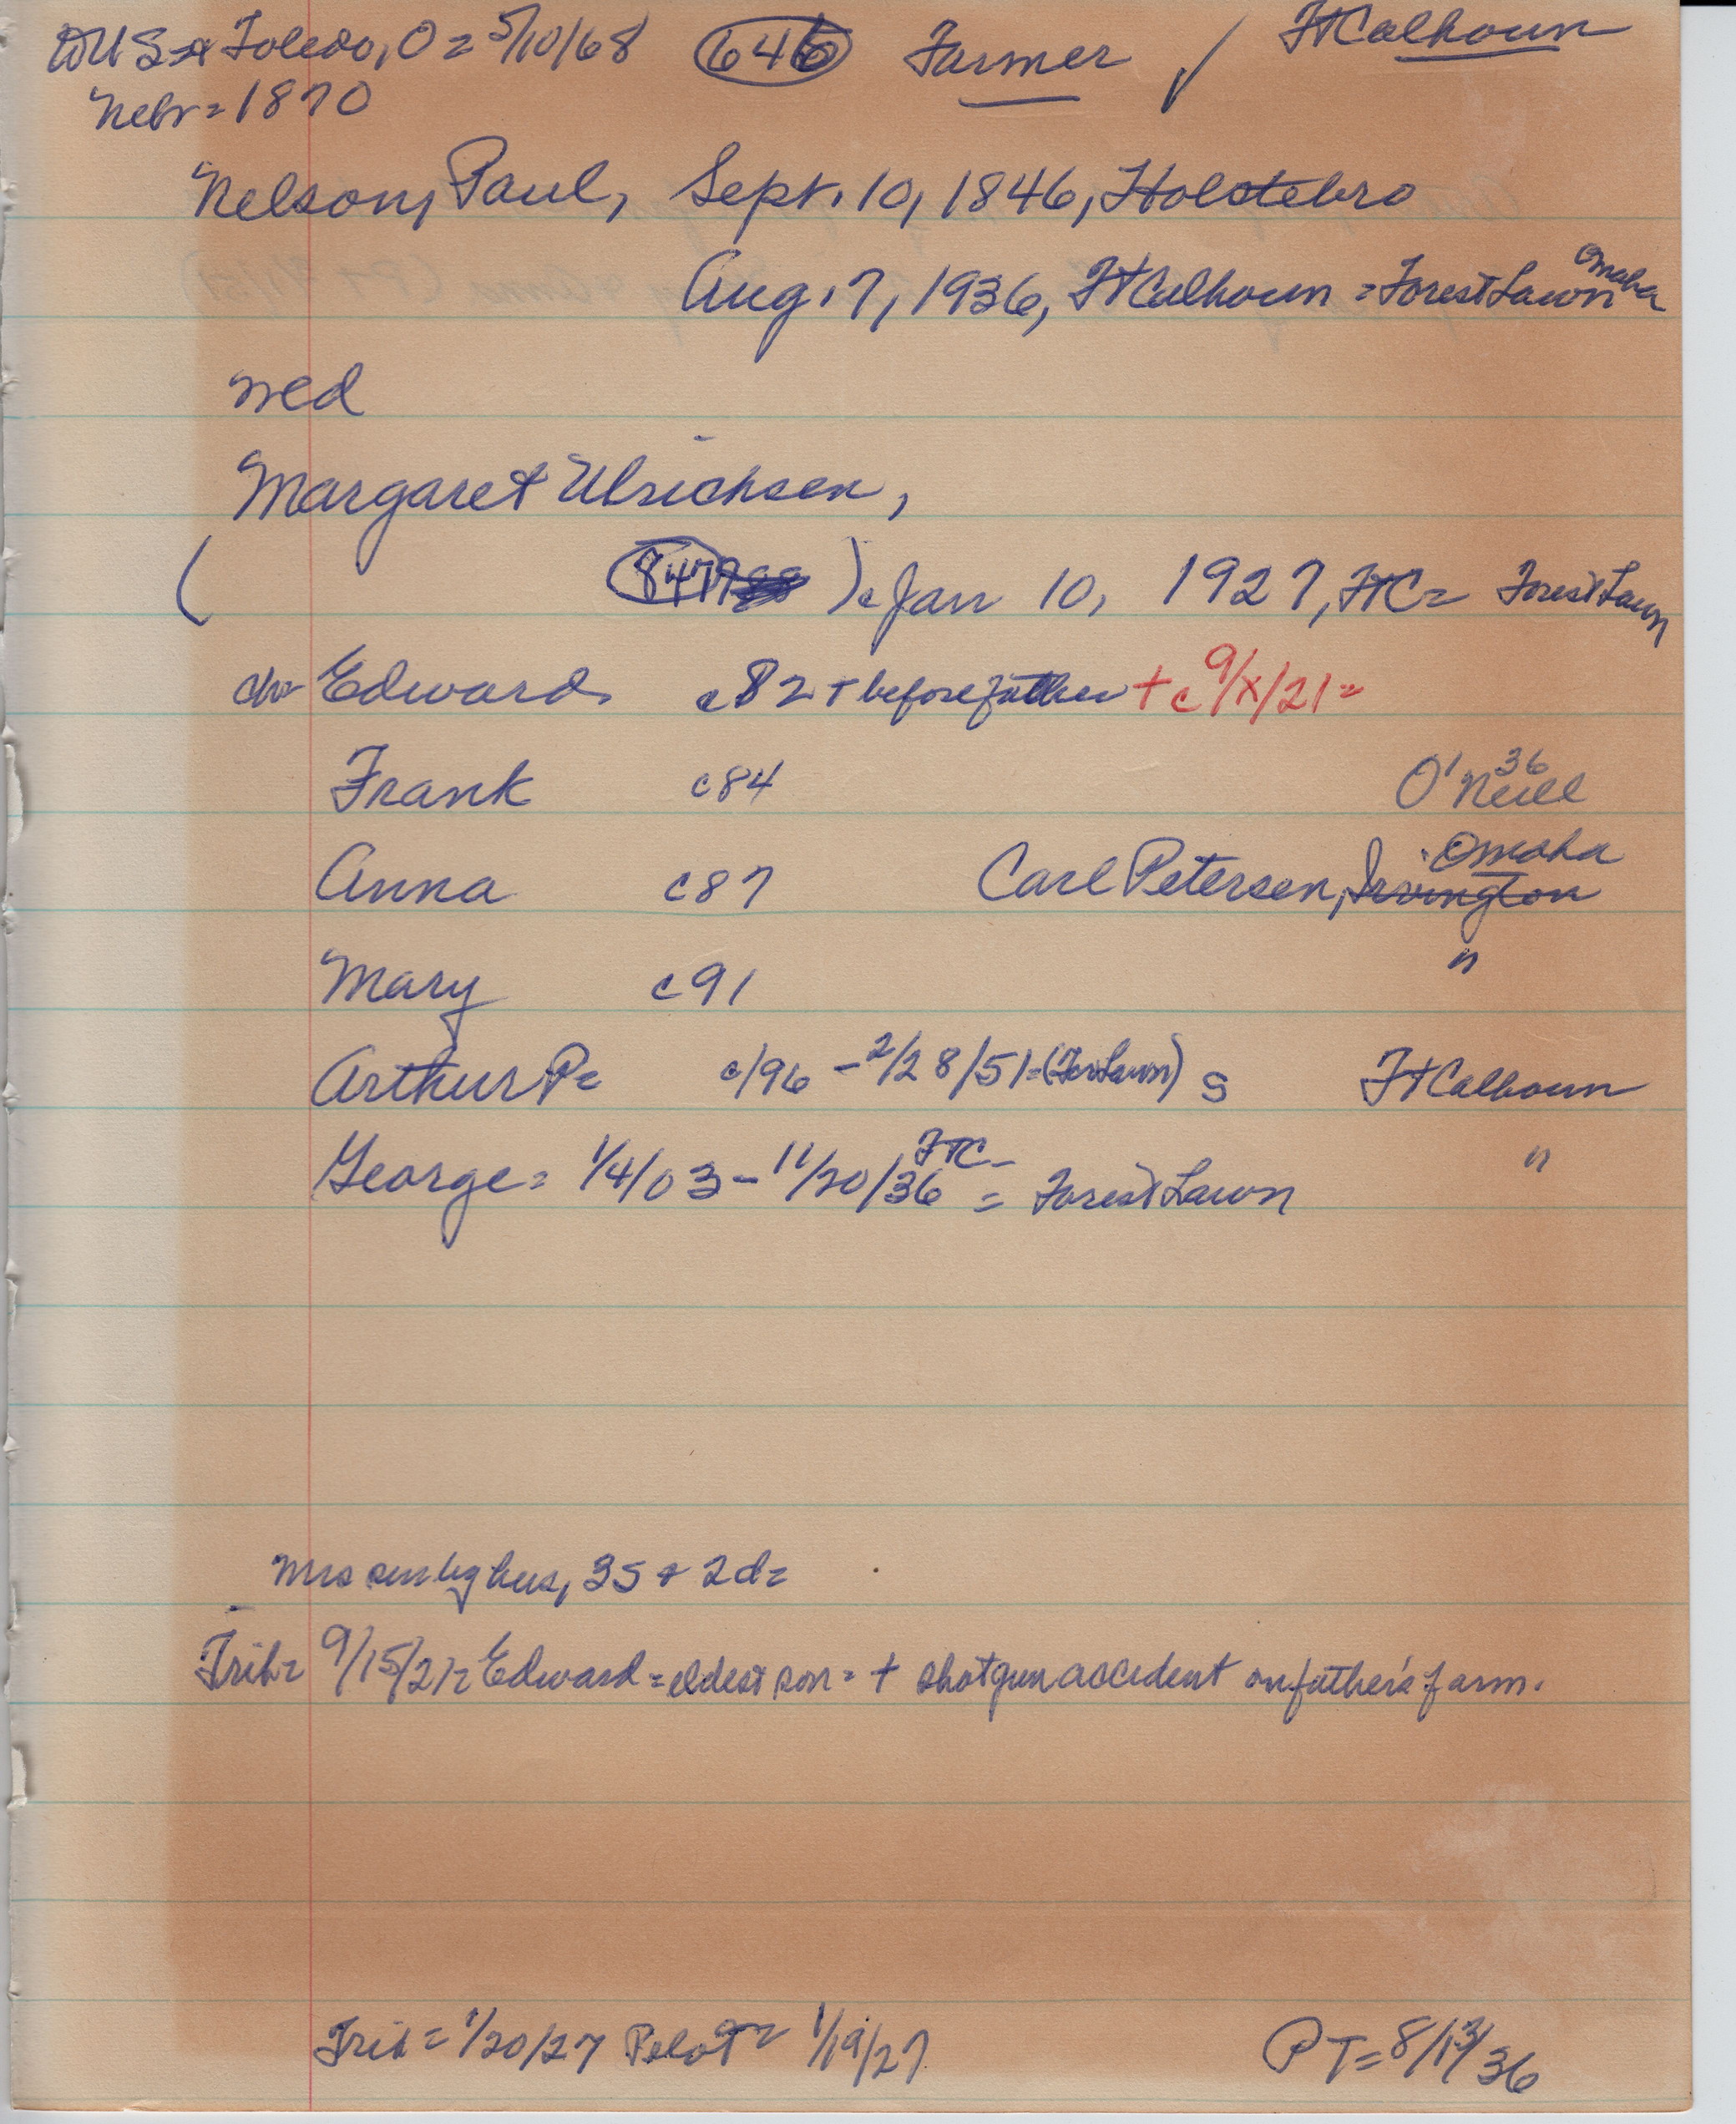 US Toledo, O = 5/10/68 646 Farmer ✓ FtCalhoun
Nebr = 1870
Nelson, Paul, Sept. 10, 1846, Holstebro
Aug. 7, 1936, FtCalhoun = Forest Lawn Omaha
wed
Margaret Ulrichsen,
( 847 ). Jan 10, 1927, FTC = Forest Lawn
ch = Edward c82 + before father + c 9/x/21 =
Frank c84 O'Neill 36
Anna c87 Carl Petersen, Irvington Omaha
Mary c91 "
Arthur P = c/96 - 2/28/51 = (For Lawn) S FtCalhoun
George = 1/4/03 - 11/20/36 FTC - = Forest Lawn "
Mrs hus, 3S + 2d =
Trib = 9/15/21 = Edward = eldest son = + shotgun accident on father's farm.
Trib = 1/20/27 Pilot = 1/19/27 PT = 8/13/36